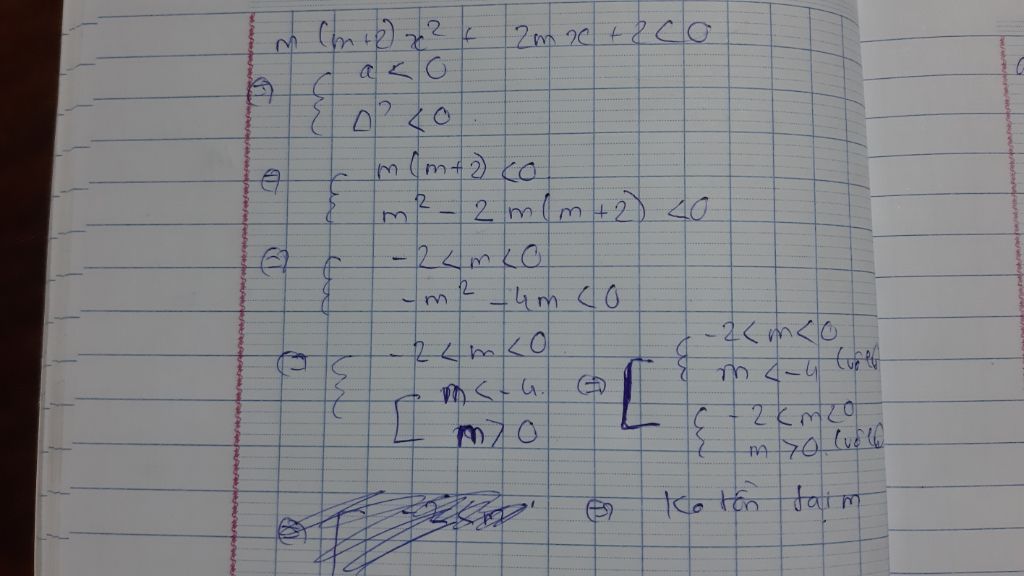 m(m+2)x² + 2mx + 2 < 0
⇔ { a < 0
Δ' < 0
⇔ { m(m+2) < 0
m² - 2m(m+2) < 0
⇔ { -2 < m < 0
-m² - 4m < 0
⇔ { -2 < m < 0
[ m < -4
m > 0
⇔ [ { -2 < m < 0
m < -4 (vô lí)
{ -2 < m < 0
m > 0 (vô lí)
⇔ Ko tồn tại m